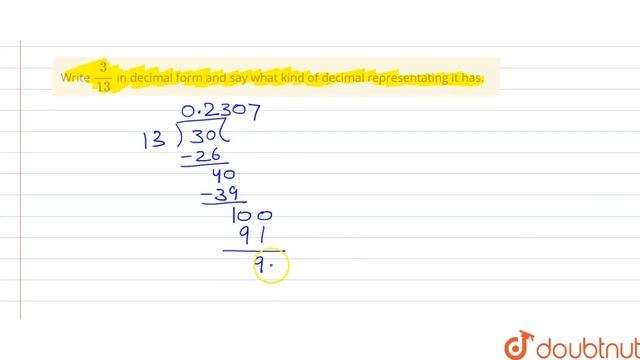 Write 3/13 in decimal form and say what kind of decimal representating it has.
0.2307
13 ) 30 (
-26
40
-39
100
91
9.
doubtnut